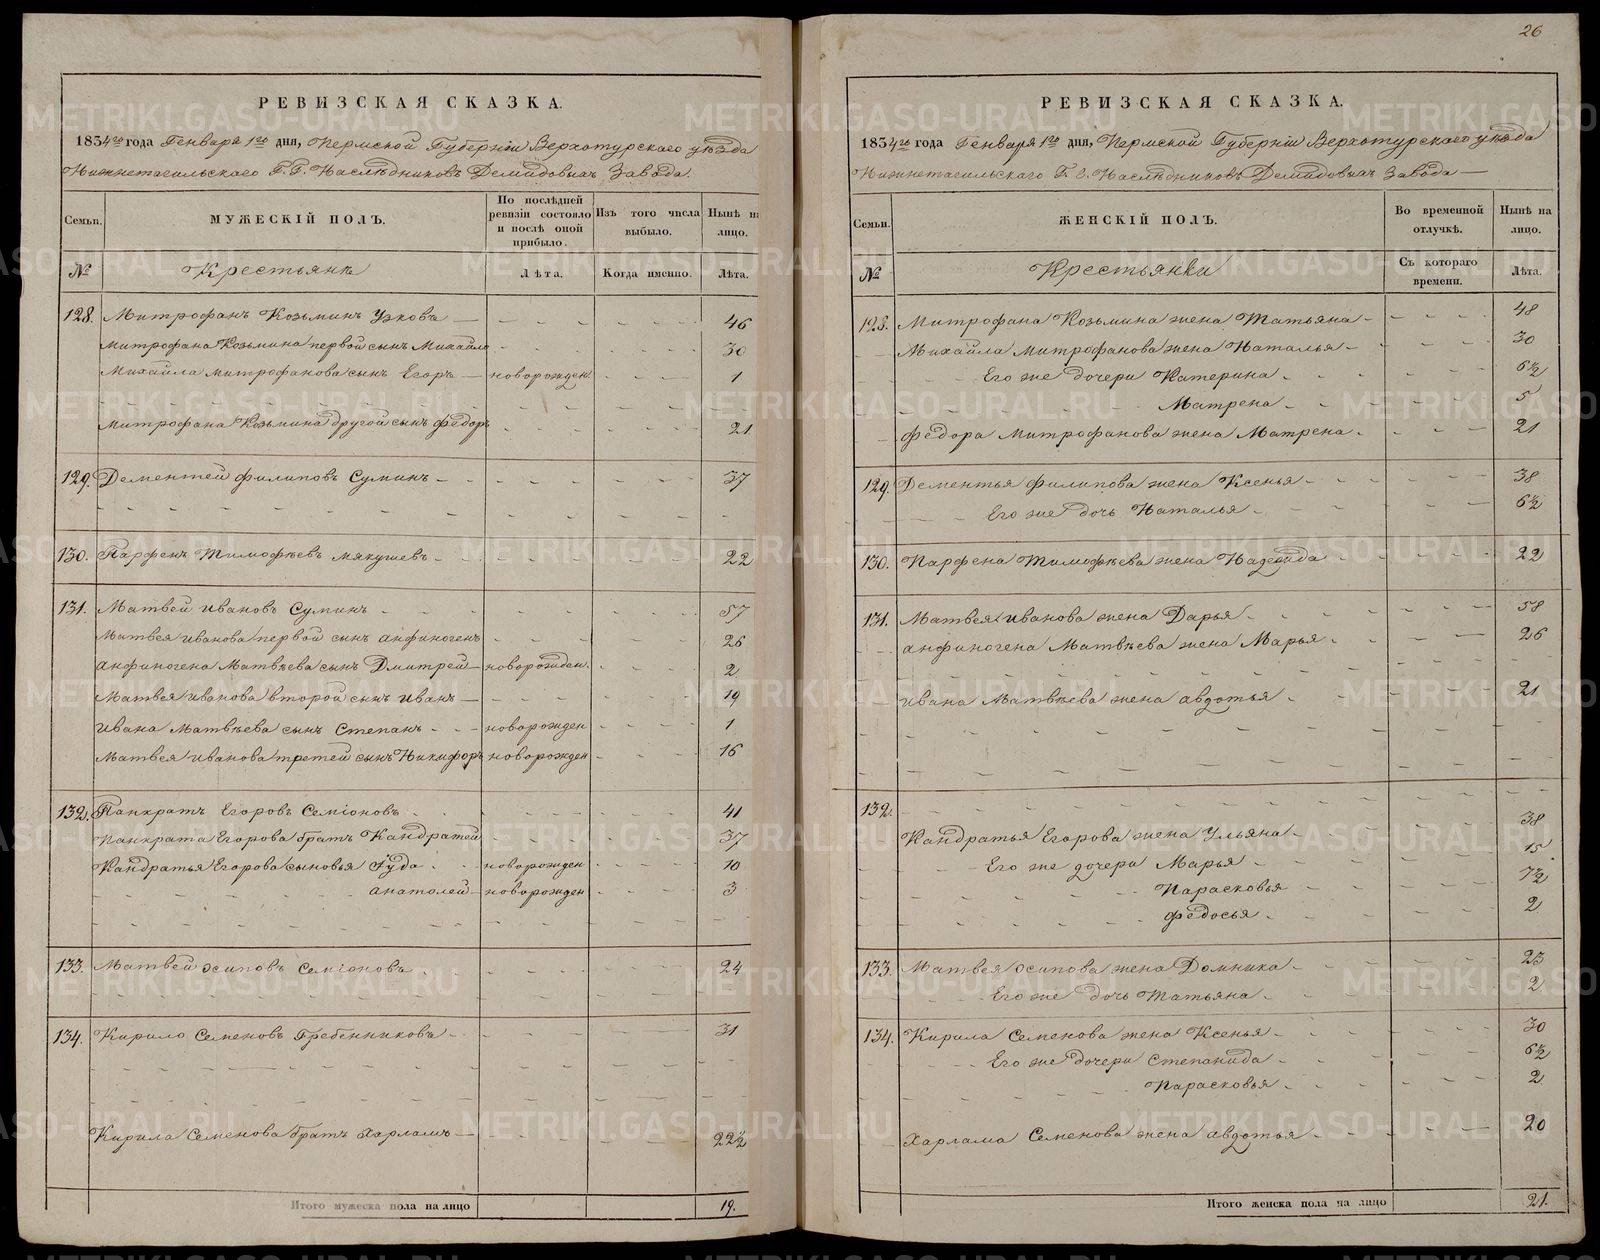 РЕВИЗСКАЯ СКАЗКА.
1834го года Генваря 1го дня, Пермской Губерніи Верхотурскаго уѣзда
Нижнетагильскаго Г. Г. Наслѣдниковъ Демидовыхъ Завода.
Семьи. МУЖЕСКІЙ ПОЛЪ. По послѣдней ревизіи состояло и послѣ оной прибыло. Изъ того числа выбыло. Нынѣ на лицо.
№ Крестьянѣ Лѣта. Когда именно. Лѣта.
128. Митрофанъ Козьминъ Узковъ 46
Митрофана Козьмина первой сынъ Михайло 30
Михайла Митрофанова сынъ Егоръ новорожден. 1
Митрофана Козьмина другой сынъ Федоръ 21
129. Дементей Филиповъ Суминъ 37
130. Парфенъ Тимофѣевъ Мякушевъ 22
131. Матвей Ивановъ Суминъ 57
Матвея Иванова первой сынъ Анфиногенъ 26
Анфиногена Матвѣева сынъ Дмитрей новорожден. 2
Матвея Иванова второй сынъ Иванъ 19
Ивана Матвѣева сынъ Степанъ новорожден 1
Матвея Иванова третей сынъ Никифоръ новорожден 16
132. Панкратъ Егоровъ Семіоновъ 41
Панкрата Егорова братъ Кандратей 37
Кандратья Егорова сыновья Гуда новорожден 10
Анатолей новорожден 3
133. Матвей Осиповъ Семіоновъ 24
134. Кирило Семеновъ Гребенниковъ 31
Кирила Семенова братъ Харламъ 22½
Итого мужеска пола на лицо 19.
26
РЕВИЗСКАЯ СКАЗКА.
1834го года Генваря 1го дня, Пермской Губерніи Верхотурскаго уѣзда
Нижнетагильскаго Г. Г. Наслѣдниковъ Демидовыхъ Завода
Семьи. ЖЕНСКІЙ ПОЛЪ. Во временной отлучкѣ. Нынѣ на лицо.
№ Крестьянки Съ котораго времени. Лѣта.
128. Митрофана Козьмина жена Татьяна 48
Михайла Митрофанова жена Наталья 30
Его же дочери Катерина 6½
Матрена 5
Федора Митрофанова жена Матрена 21
129. Дементья Филипова жена Ксенья 38
Его же дочь Наталья 6½
130. Парфена Тимофѣева жена Надежда 22
131. Матвея Иванова жена Дарья 58
Анфиногена Матвѣева жена Марья 26
Ивана Матвѣева жена Авдотья 21
132.
Кандратья Егорова жена Ульяна 38
Его же дочери Марья 15
Парасковья 7½
Федосья 2
133. Матвея Осипова жена Домника 23
Его же дочь Татьяна 2
134. Кирила Семенова жена Ксенья 30
Его же дочери Степанида 6½
Парасковья 2
Харлама Семенова жена Авдотья 20
Итого женска пола на лицо 21.
METRIKI.GASO-URAL.RU